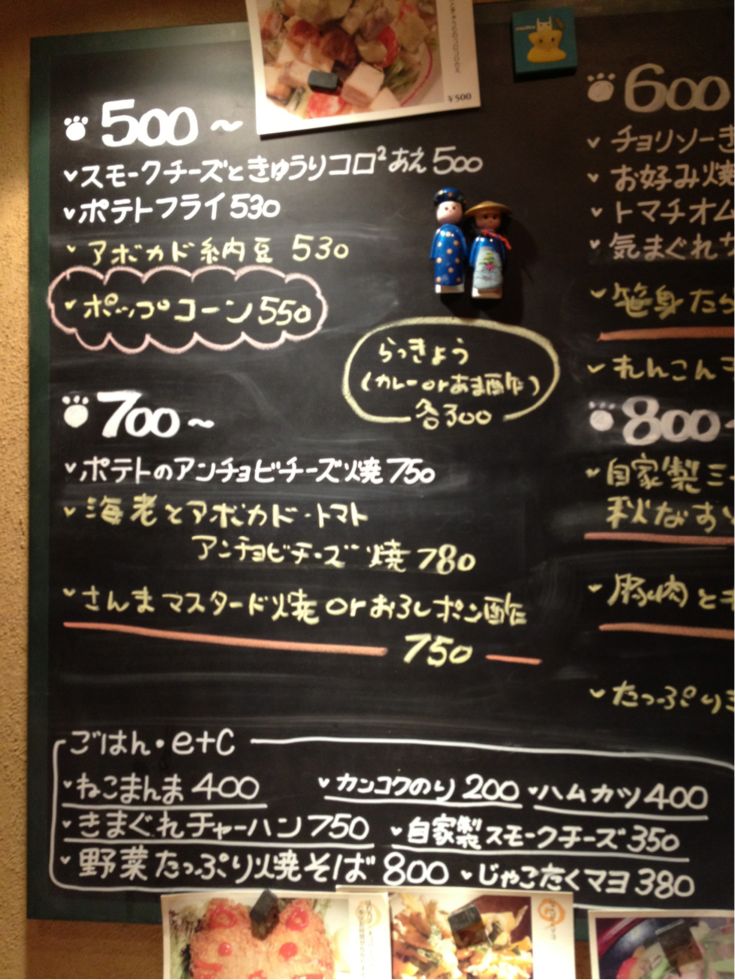 ¥500
500~
スモークチーズときゅうりコロ²あえ500
ポテトフライ530
アボカド納豆 530
ポップコーン550
らっきょう
(カレーorあま酢)
各300
700~
ポテトのアンチョビチーズ焼750
海老とアボカド・トマト
アンチョビチーズ焼780
さんまマスタード焼orおろしポン酢
750
600
チョリソーき
お好み焼
トマチオム
気まぐれサ
笹身たら
れんこん
800~
自家製ミ
秋なす
豚肉と
たっぷり
ごはん・etc
ねこまんま400 カンコクのり200 ハムカツ400
きまぐれチャーハン750 自家製スモークチーズ350
野菜たっぷり焼そば800 じゃこたくマヨ380